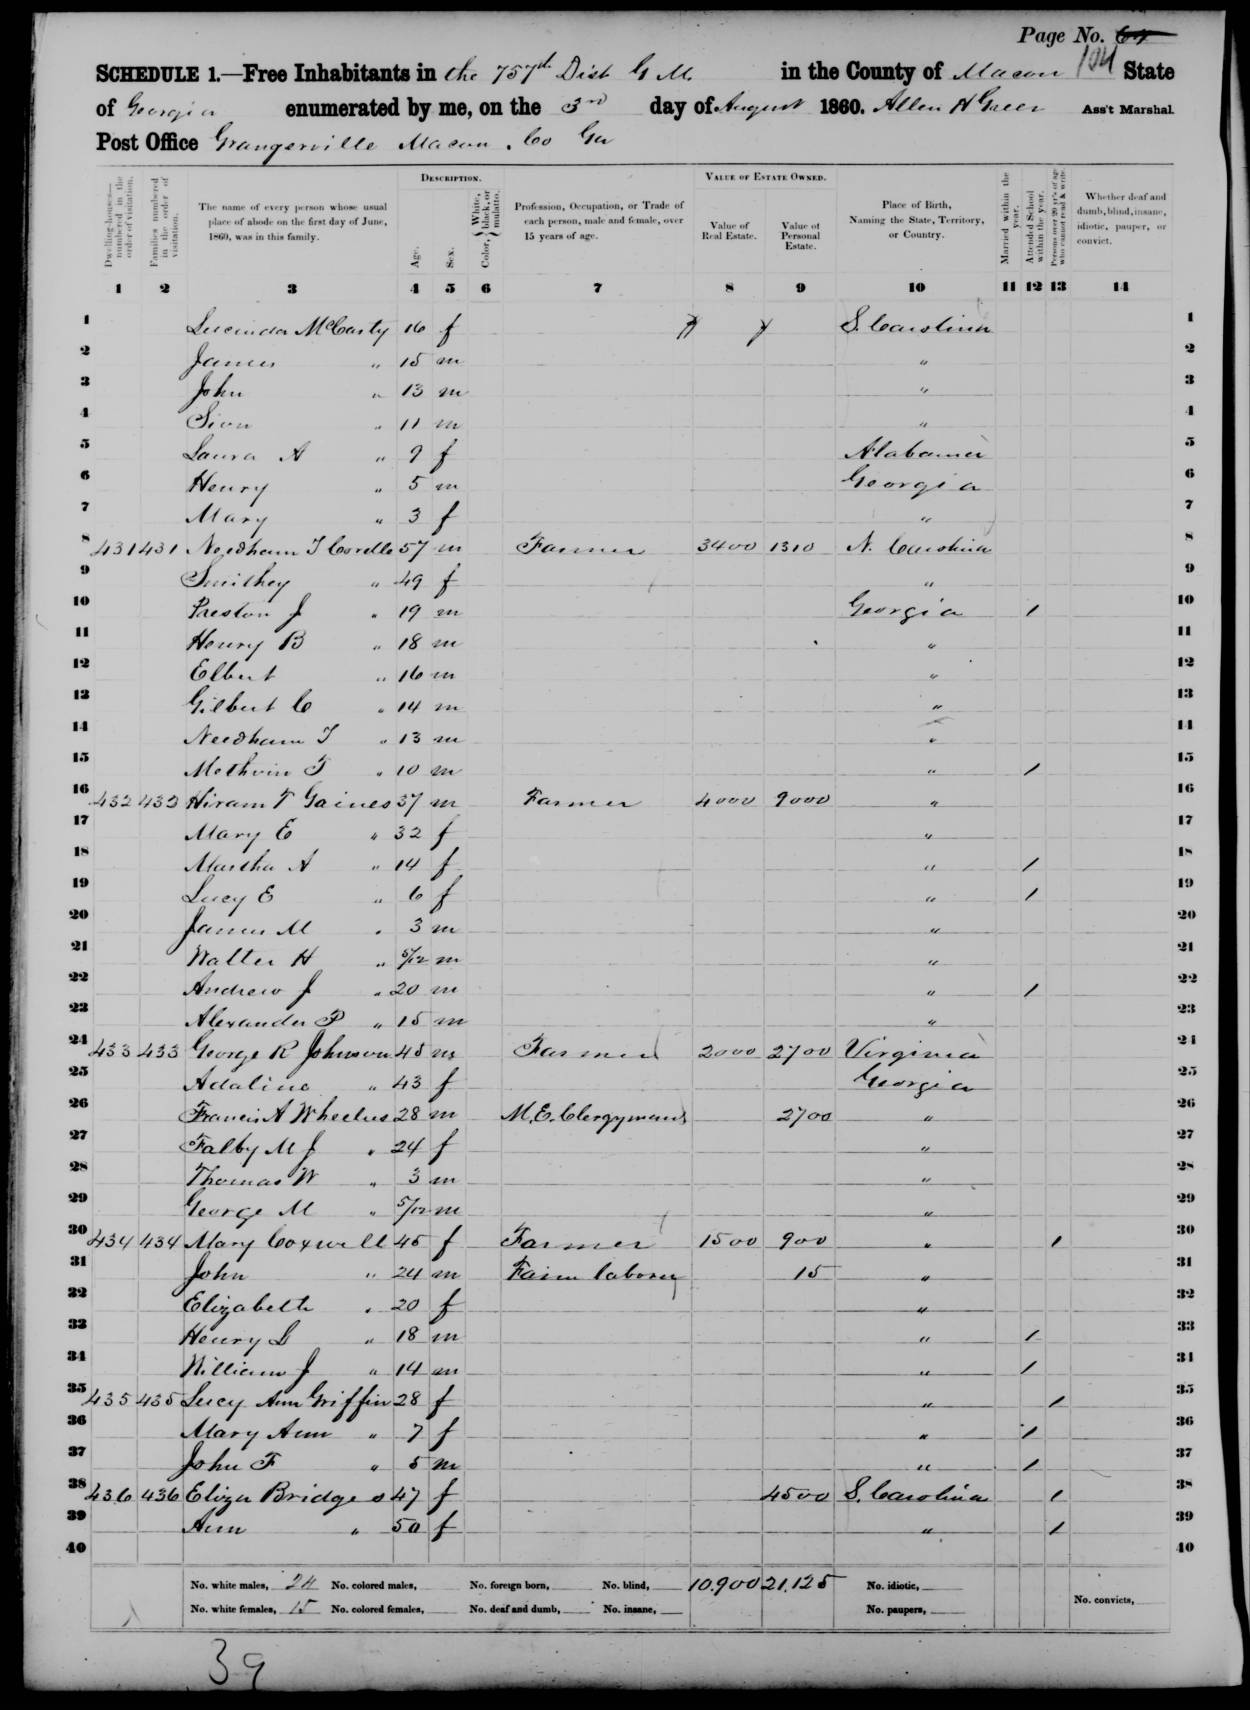 Page No. 64
104
SCHEDULE 1.—Free Inhabitants in the 757th Dist G M. in the County of Macon State
of Georgia enumerated by me, on the 3rd day of August 1860. Allen H Greer Ass't Marshal.
Post Office Grangerville Macon Co Ga
DESCRIPTION. VALUE OF ESTATE OWNED.
Dwelling-houses—numbered in the order of visitation.
Families numbered in the order of visitation.
The name of every person whose usual place of abode on the first day of June, 1860, was in this family.
Age.
Sex.
Color, { White, black, or mulatto.
Profession, Occupation, or Trade of each person, male and female, over 15 years of age.
Value of Real Estate.
Value of Personal Estate.
Place of Birth, Naming the State, Territory, or Country.
Married within the year.
Attended School within the year.
Persons over 20 y'rs of age who cannot read & write.
Whether deaf and dumb, blind, insane, idiotic, pauper, or convict.
1 2 3 4 5 6 7 8 9 10 11 12 13 14
1 Lucinda McCarty 16 f S. Carolina 1
2 James " 15 m " 2
3 John " 13 m " 3
4 Sion " 11 m " 4
5 Laura A " 9 f Alabama 5
6 Henry " 5 m Georgia 6
7 Mary " 3 f " 7
8 431 431 Needham T 57 m Farmer 3400 1310 N. Carolina 8
9 Smithey " 49 f " 9
10 Preston J " 19 m Georgia / 10
11 Henry B " 18 m " 11
12 Elbert " 16 m " 12
13 Gilbert C " 14 m " 13
14 Needham T " 13 m " 14
15 Methvin F " 10 m " / 15
16 432 432 Hiram T Gaines 37 m Farmer 4000 9000 " 16
17 Mary E " 32 f " 17
18 Martha A " 14 f " / 18
19 Lucy E " 6 f " / 19
20 James M " 3 m " 20
21 Walter H " 5/12 m " 21
22 Andrew J " 20 m " / 22
23 Alexander P " 15 m " 23
24 433 433 George R Johnson 45 m Farmer 2000 2700 Virginia 24
25 Adaline " 43 f Georgia 25
26 Francis A Wheelus 28 m M.E. Clergyman 2700 " 26
27 Falby M J " 24 f " 27
28 Thomas W " 3 m " 28
29 George M " 5/12 m " 29
30 434 434 Mary Coxwell 45 f Farmer 1500 900 " / 30
31 John " 24 m Farm laborer 15 " 31
32 Elizabeth " 20 f " 32
33 Henry L " 18 m " / 33
34 William J " 14 m " / 34
35 435 435 Lucy Ann Griffin 28 f " / 35
36 Mary Ann " 7 f " / 36
37 John F " 5 m " / 37
38 436 436 Eliza Bridges 47 f 4500 S. Carolina / 38
39 Ann " 50 f " / 39
40 40
No. white males, 24 No. colored males, No. foreign born, No. blind, 10.900 21.125 No. idiotic,
No. white females, 15 No. colored females, No. deaf and dumb, No. insane, No. paupers, No. convicts,
39